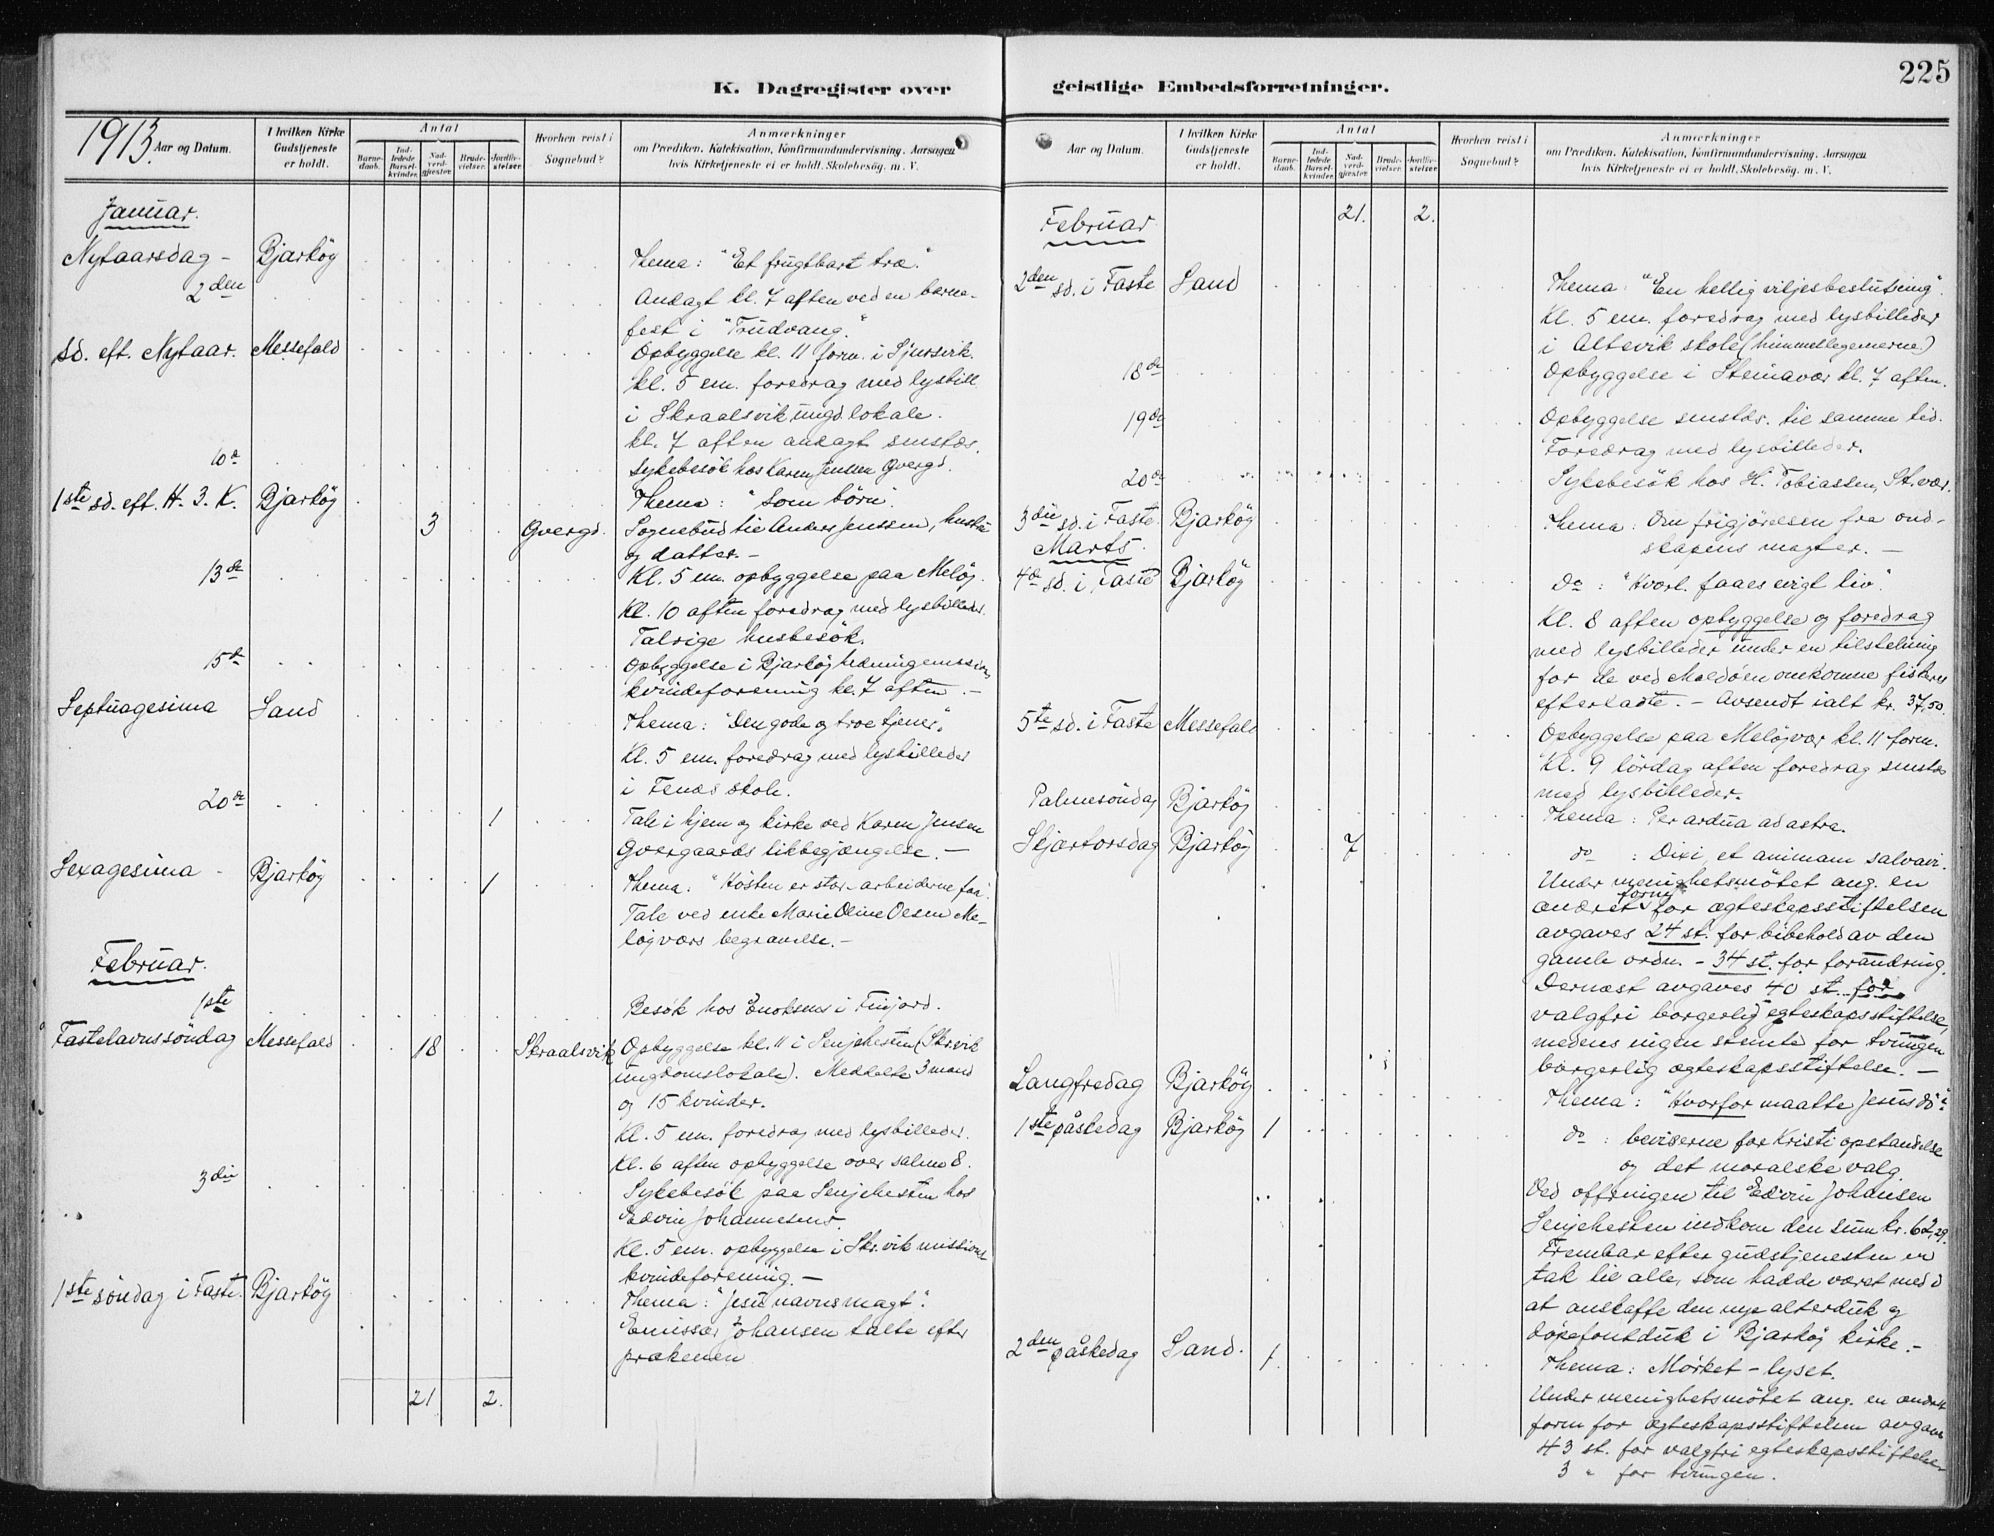 225
K. Dagregister over
geistlige Embedsforretninger.
1913.
Aar og Datum.
I hvilken Kirke Gudstjeneste er holdt.
Antal
Barne-daab.
Ind-ledede Barsel-kvinder.
Nad-verd-gjæster.
Brude-vielser.
Jordfæ-stelser.
Hvorhen reist i Sognebud?
Anmærkninger
om Prædiken. Katekisation, Konfirmandundervisning. Aarsagen
hvis Kirketjeneste ei er holdt. Skolebesøg. m. V.
Januar.
Nytaarsdag - Bjarköy Thema: "Et frugtbart træ."
2den Andagt kl. 7 aften ved en barne-
fest i "Trudvang."
Sd. eft. Nytaar. Messefald Opbyggelse kl. 11 form. i
kl. 5 em. foredrag med lysbill.
i Skraalsvik ungd. lokale.
kl. 7 aften andagt smstds.
10de Sykebesök hos Karen Jensen Gvergd.
1ste sd. eft. H. 3. K. Bjarköy Thema: "Som börn".
3 Gvergd. Sognebud til Anders Jenssen, hustru
og datter. -
13de Kl. 5 em. opbyggelse paa Melöy.
Kl. 10 aften foredrag med lysbilleder.
Talrige husbesök.
15de Opbyggelse i Bjarköy hedningemission
kvindeforening kl. 7 aften. -
Septuagesima Sand Thema: "Den gode og troe tjener".
Kl. 5 em. foredrag med lysbilleder
i Fenæs skole.
20de 1 Tale i hjem og kirke ved Karen Jensen
Gvergaards likbegjængelse. -
Sexagesima - Bjarköy 1 Thema: "Hösten er stor - arbeiderne faa".
Tale ved enke Marie Oline Olsen Me-
löyværs begravelse. -
Februar.
1ste Besök hos Enoksens i Finjord.
Fastelavnssöndag Messefald 18 Skraalsvik Opbyggelse kl. 11 i Senjehesten (Skr.vik
ungdomslokale). Meddelte 3 mænd
og 15 kvinder.
Kl. 5 em. foredrag med lysbilleder.
Kl. 6 aften opbyggelse over salme 8.
3die Sykebesök paa Senjehesten hos
Edvin Johannesens.
Kl. 5 em. opbyggelse i Skr.vik missions
kvindeforening. -
1ste söndag i Faste. Bjarköy Thema: "Jesu navns magt".
Emissær Johansen talte efter
prækenen
21 2.
Aar og Datum.
I hvilken Kirke Gudstjeneste er holdt.
Antal
Barne-daab.
Ind-ledede Barsel-kvinder.
Nad-verd-gjæster.
Brude-vielser.
Jordfæ-stelser.
Hvorhen reist i Sognebud?
Anmærkninger
om Prædiken. Katekisation, Konfirmandundervisning. Aarsagen
hvis Kirketjeneste ei er holdt. Skolebesøg. m. V.
Februar 21. 2.
2den sd. i Faste Sand Thema: "En hellig viljesbeslutning".
Kl. 5 em. foredrag med lysbilleder
i Altevik skole (himmellegemerne)
18de Opbyggelse i Steinavær kl. 7 aften.
19de Opbyggelse smstds. til samme tid.
Foredrag med lysbilleder.
20de Sykebesök hos H. Tobiassen, St.vær.
3die sd. i Faste. Bjarköy Thema: Om frigjörelsen fra ond-
skapens magter. -
Marts.
4de sd. i Faste Bjarköy do: "Hvorl. faaes evigt liv".
Kl. 8 aften opbyggelse og foredrag
med lysbilleder under en tilstelning
for de ved Maldöen omkomne fiskeres
efterladte. - Avsendt ialt kr. 37,50.
5te sd. i Faste Messefald Opbyggelse paa Melöyvær kl. 11 form.
Kl. 9 lördag aften foredrag smstds
med lysbilleder.
Palmesöndag Bjarköy Thema: Per ardua ad astra.
Skjærtorsdag Bjarköy 7 do: Dixi, et animam salvavi.
Under menighetsmötet ang. en
ændret form for ægteskapsstiftelsen
avgaves 24 st. for bibehold av den
gamle ordn. - 34 st. for forandring.
Dernæst avgaves 40 st. for
valgfri borgerlig egteskapsstiftelse,
medens ingen stemte for tvungen
borgerlig ægteskapsstiftelse. -
Langfredag Bjarköy Thema: "Hvorfor maatte Jesus dö"
1ste påskedag Bjarköy 1 do: beviserne for Kristi opstandelse
og det moralske valg.
Ved offringen til Edvin Johansen
Senjehesten indkom den sum kr. 62,29.
Frembar efter gudstjenesten en
tak til alle, som hadde været med i
at anskaffe den nye alterduk og
döpefontduk i Bjarköy kirke. -
2den påskedag Sand. 1. Thema: Mörket - lyset.
Under menighetsmötet ang. en ændret
form for ægteskapsstiftelsen avgaves
43 st. for valgfri egteskapsstiftelse
3 " for tvungen.